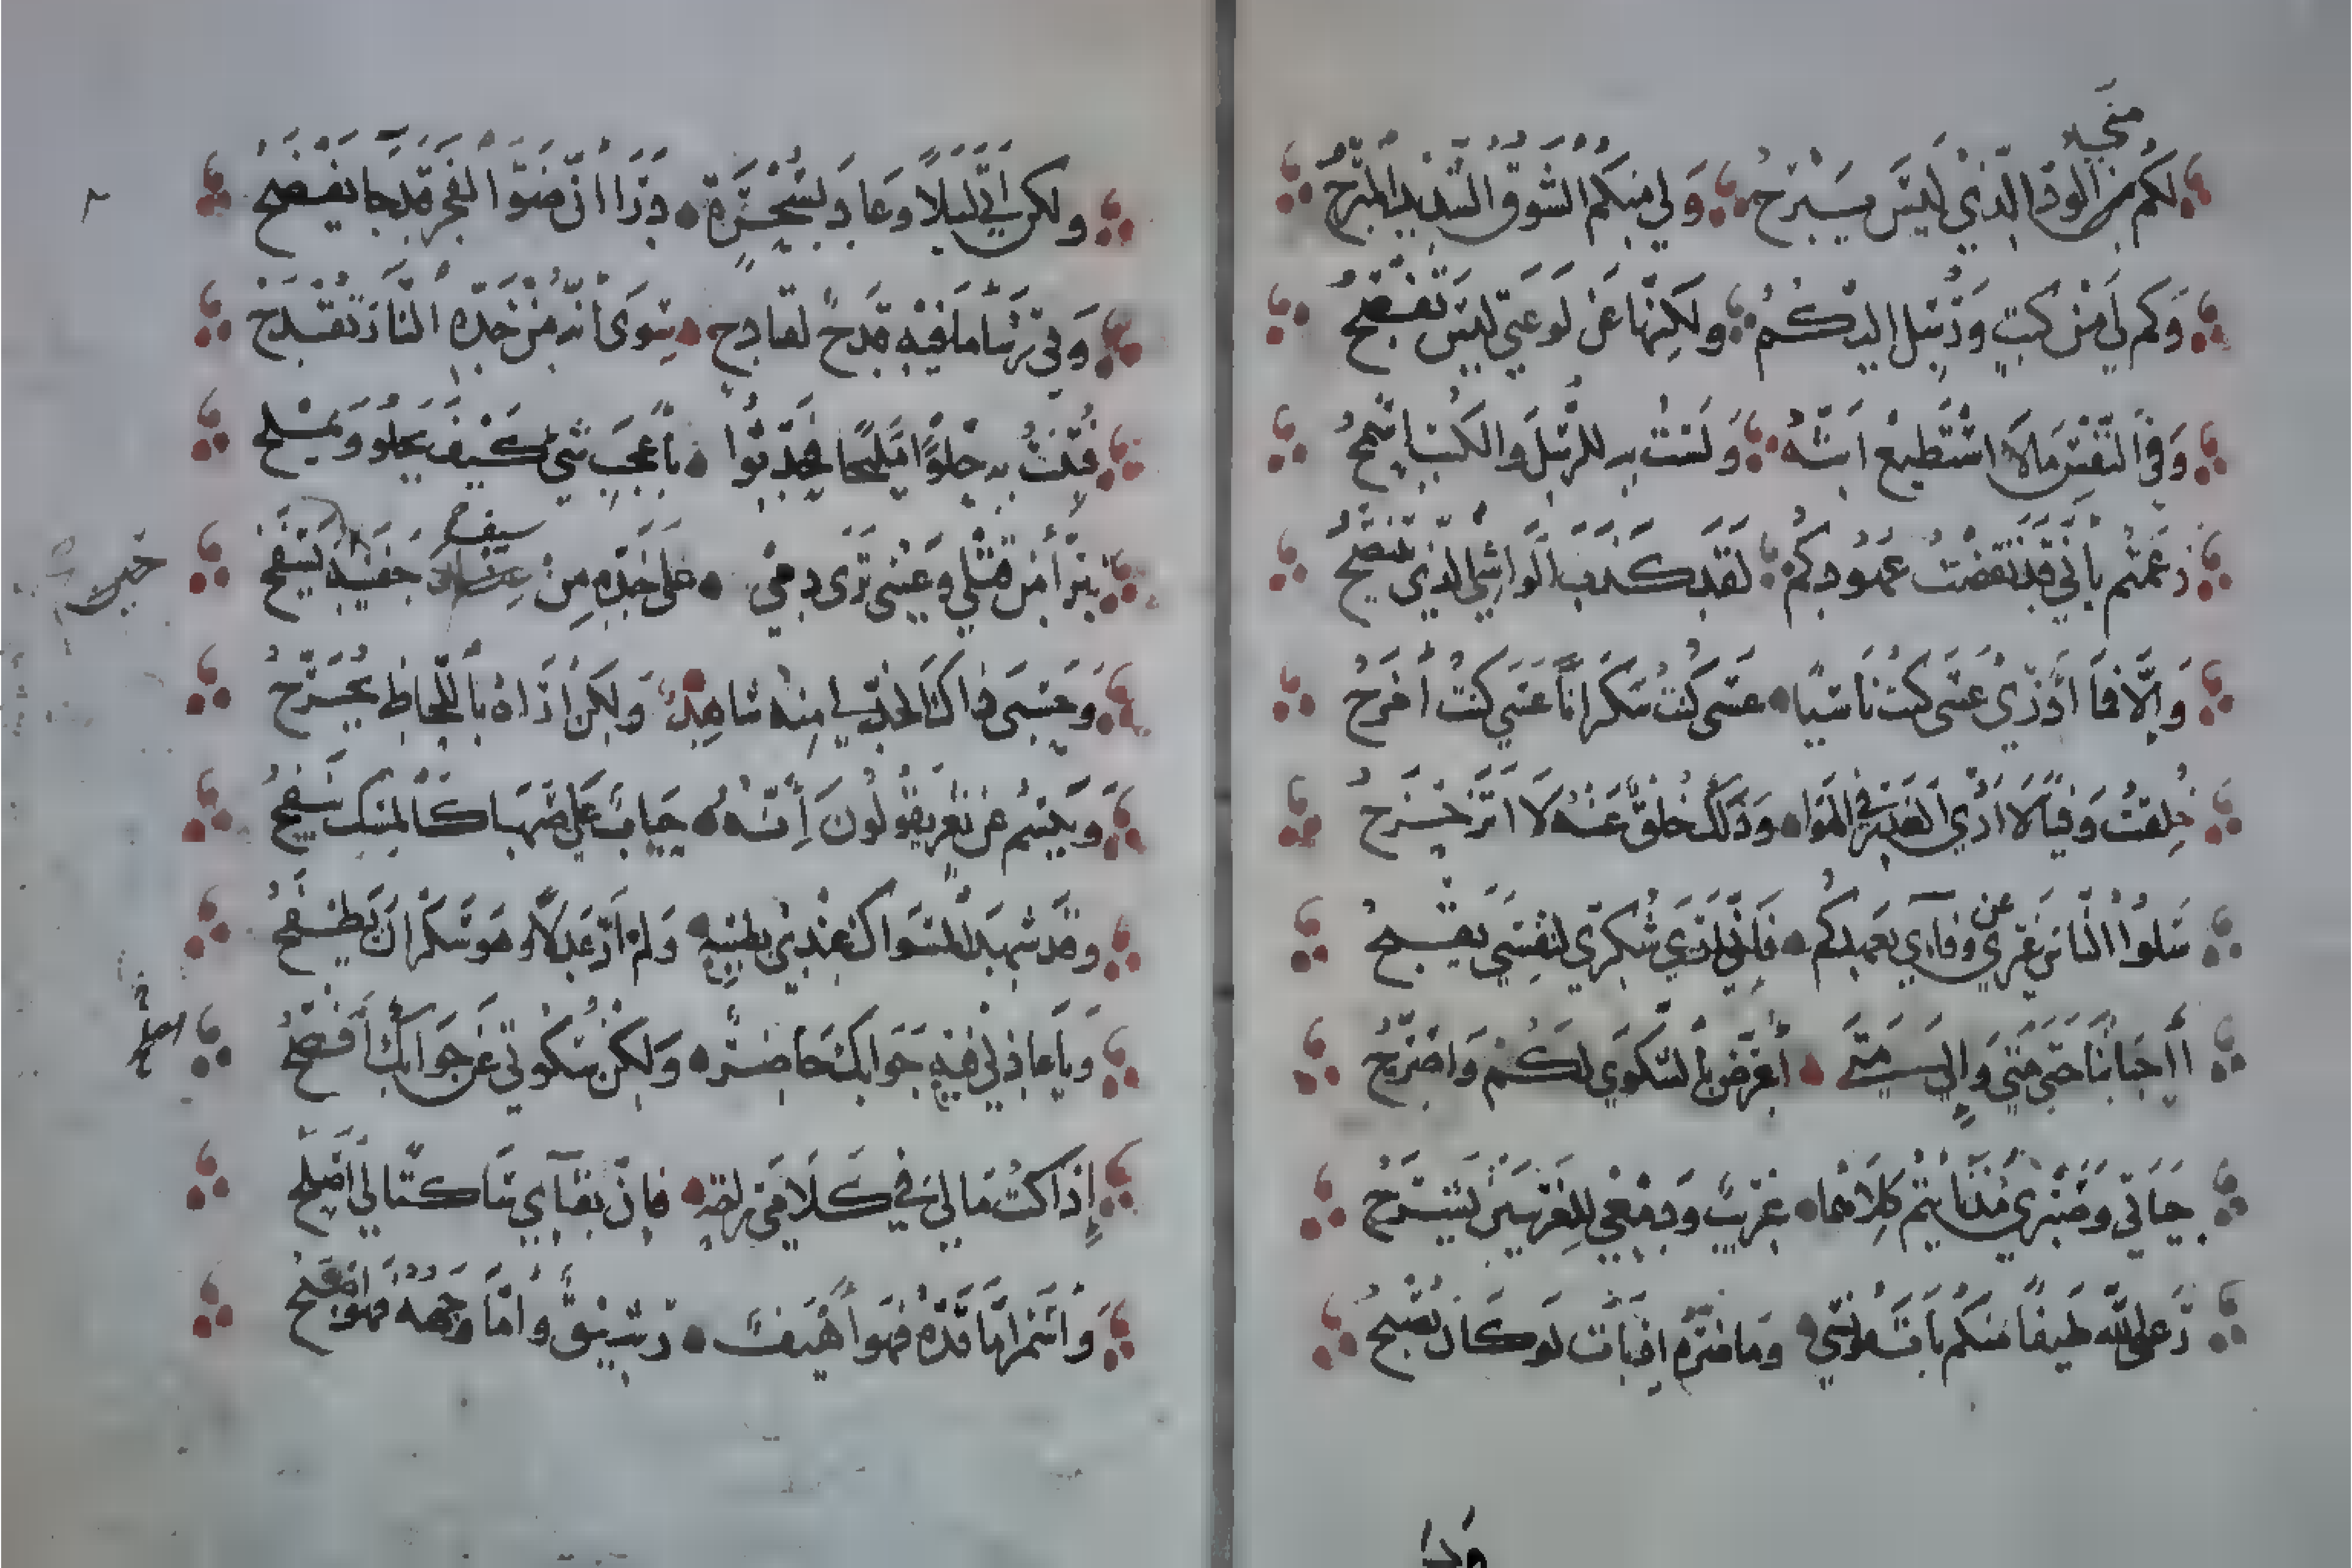 منجيه
لكم من الوداد الذي ليس يبرح ولي منكم الشوق الشديد المبرح
وكم لي من كتب ورسل إليكم ولكنها عن لوعتي ليس تفصح
وفي النفس ما لا استطيع ابثه ولست به للرسل والكتب اسمح
زعمتم بأني قد نقضت عهودكم لقد كذب الواشي الذي يتنصح
وإلا فما أدري عسى كنت ناسيا عسى كنت سكرانا عسى كنت أمزح
خلقت وفيا لا ارى الغدر في الهوا وذلك خلق عنه لا اتزحزح
سلوا الناس غيري عن وفآءي بعهدكم فإني ارى شكري لنفسي يقبح
أاحبابنا حتى متى وإلى متى أعرض بالشكوى لكم واصرح
حياتي وصبري مذ نايتم كلاهما غريب ودمعي للغريبين يشرح
رعى الله طيفا منكم بات مؤنسي وما ضره اذ بات لو كان يصبح
ولكن اتى ليلا وعاد بسحرة درى ان ضوء الفجر قد جا يفضح
وبي رشا ما فيه قدح لقادح سوى أنه من خده النار تقدح
فتنت به حلوا مليحا فحدثوا بأعجب شي كيف يحلو ويملح
تبرأ من قتلي وعيني ترى دمي على خده من سيف جفنيه يسفح
وحسبي ذاك الخد لي منه شاهد ولكن اراه باللحاظ يجرح
ويبسم عن ثغر يقولون أنه حباب على صهبا كالمسك ينفح
وقد شهد المسواك عندي بطيبه ولم أر عدلا وهو سكران يطفح
ويا عاذلي فيه جوابك حاضر ولكن سكوتي عن جوابك أفصح
إذا كنت ما لي في كلامي راحة فإن بقآءي ساكتا لي أصلح
وأسمر أما قده فهو أهيف رشيق وأما وجهه فهو اصبح